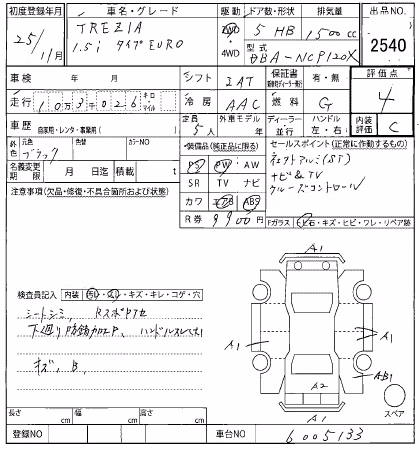 初度登録年月 車名・グレード 駆動 ドア数・形状 排気量 出品NO.
25/11月 TREZIA 2WD 5 HB 1500cc 2540
1.5i タイプEURO 4WD 型式 DBA-NCP120X
車検 年 月 シフト IAT 保証書 有・無 評価点
走行 10万3千026 キロ マイル 冷房 AAC 燃料 G 4
車歴 自家用・レンタ・事業用( ) 定員 5人 外車モデル 年 ディーラー 並行 ハンドル 左・右 内装評価 C
外色 元色 ブラック 色替 カラーNO 装備品(純正品に限る) セールスポイント(正常に作動するもの)
名義変更期限 月 日迄 積載 t PS PW AW 社外アルミ(SP)
注意事項(欠品・修復・不具合箇所および状態) SR TV ナビ ナビ&TV
カワ エアB ABS クルーズコントロール
R券 9900円 Fガラス トビ石・キズ・ヒビ・ワレ・リペア跡
A1
検査員記入 内装 汚レ・スレ・キズ・キレ・コゲ・穴
シートシミ、Rスポアセ
下廻り防錆加工P、ハンドルスレ
キズ、B、
A1 A1
A2 AB1
A1 スペア
長さ cm 幅 cm 高さ cm
登録NO 車台NO 6005133